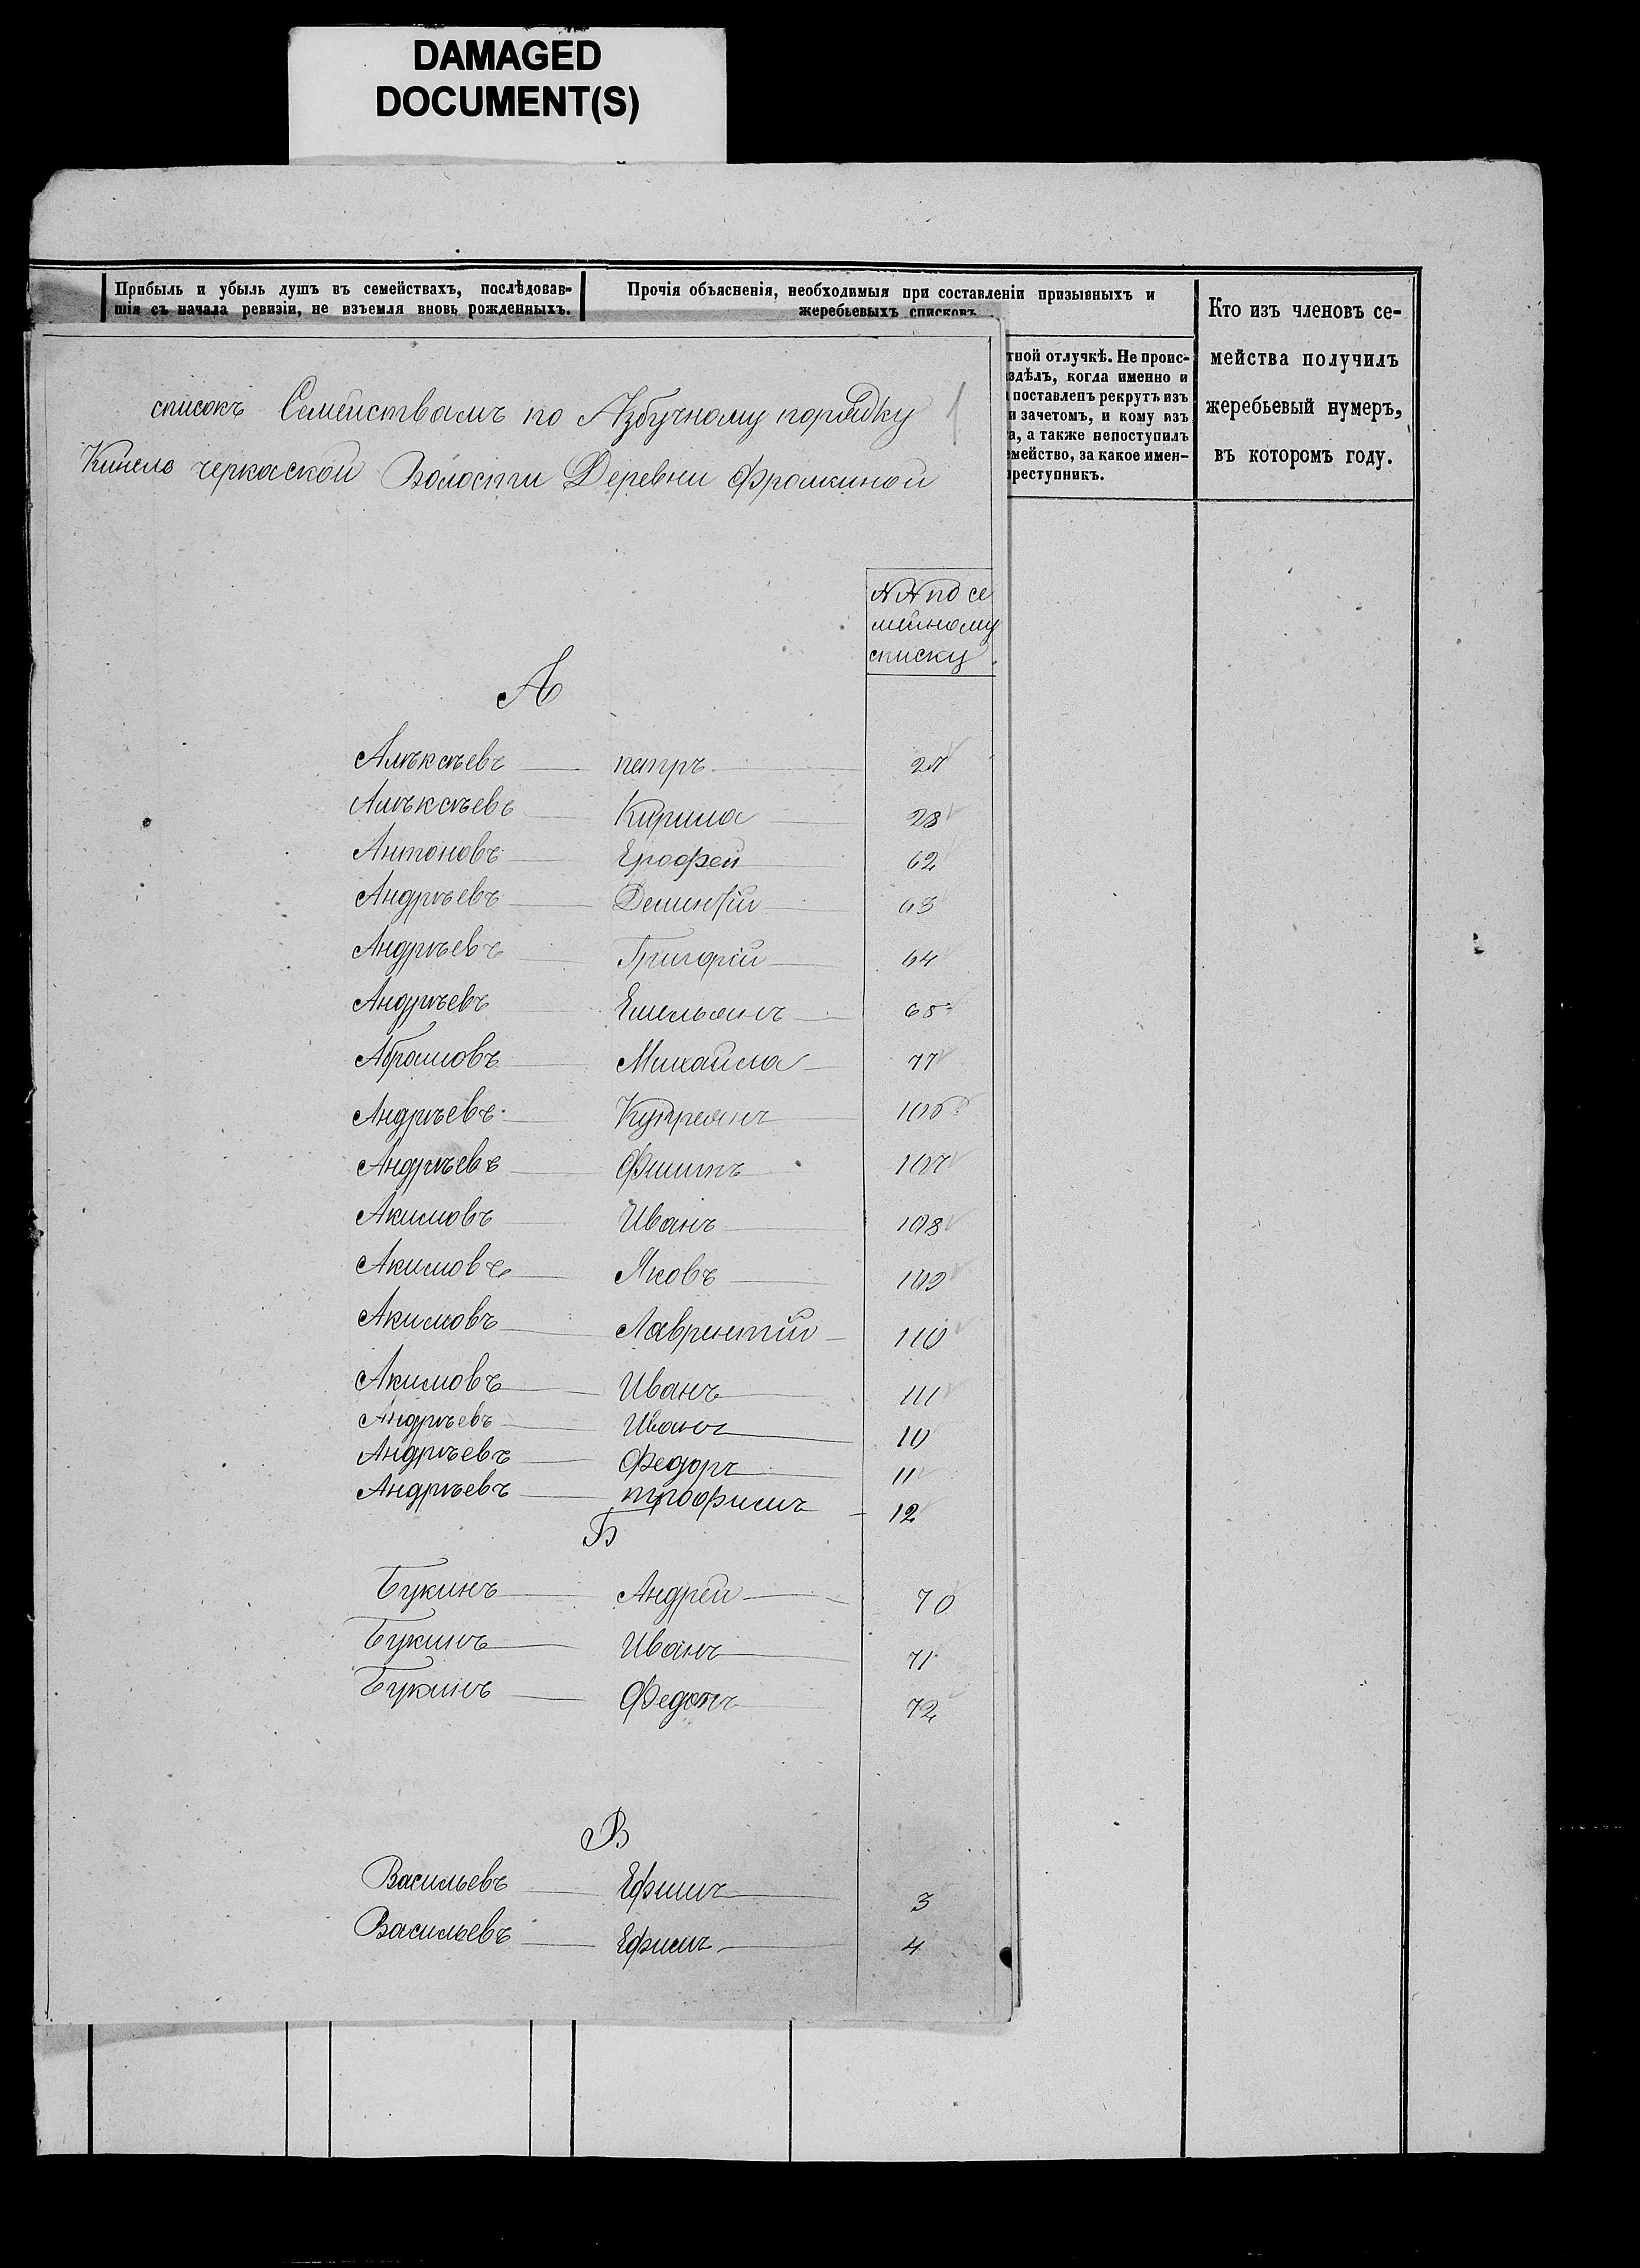 DAMAGED
DOCUMENT(S)
Прибыль и убыль душъ въ семействахъ, послѣдовав-
шія съ начала ревизіи, не изъемля вновь рожденныхъ.
Прочія объясненія, необходимыя при составленіи призывныхъ и
жеребьевыхъ списковъ.
Кто изъ членовъ се-
мейства получилъ
жеребьевый нумеръ,
въ которомъ году.
тной отлучкѣ. Не проис-
здѣлъ, когда именно и
поставленъ рекрутъ изъ
и зачетомъ, и кому изъ
а, а также непоступилъ
емейство, за какое имен-
преступникъ.
списокъ Семействамъ по Азбучному порядку 1
Кинель черкаской Волости Деревни Фролкиной
№№ по се
мейному
списку
А
Алѣксѣевъ петръ 27
Алѣксѣевъ Кирила 28
Антоновъ Ерофей 62
Андрѣевъ 63
Андрѣевъ Григорій 64
Андрѣевъ Емельянъ 65
Абрамовъ Михайла 77
Андрѣевъ Купреянъ 106
Андрѣевъ Филипъ 107
Акимовъ Иванъ 108
Акимовъ Яковъ 109
Акимовъ Лаврентій 110
Акимовъ Иванъ 111
Андрѣевъ Иванъ 10
Андрѣевъ Федоръ 11
Андрѣевъ трофимъ 12
Б
Букинъ Андрей 70
Букинъ Иванъ 71
Букинъ Федотъ 72
В
Васильевъ Ефимъ 3
Васильевъ Ефимъ 4